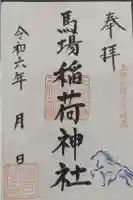 奉拝
馬場稲荷神社
令和六年 月 日